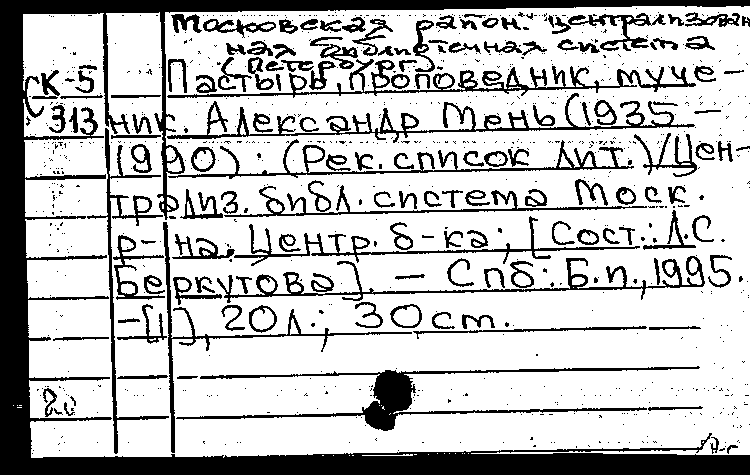 Московская район. централизован
ная библиотечная система
(Петербург).
СК-5 Пастырь, проповедник, муче-
313 ник. Александр Мень (1935 -
1990) : (Рек. список лит.) / Цен-
трализ. библ. система Моск.
р-на. Центр. б-ка; [Сост.: Л.С.
Беркутова]. - Спб: Б.п., 1995.
-[1], 20 л.; 30 cm.